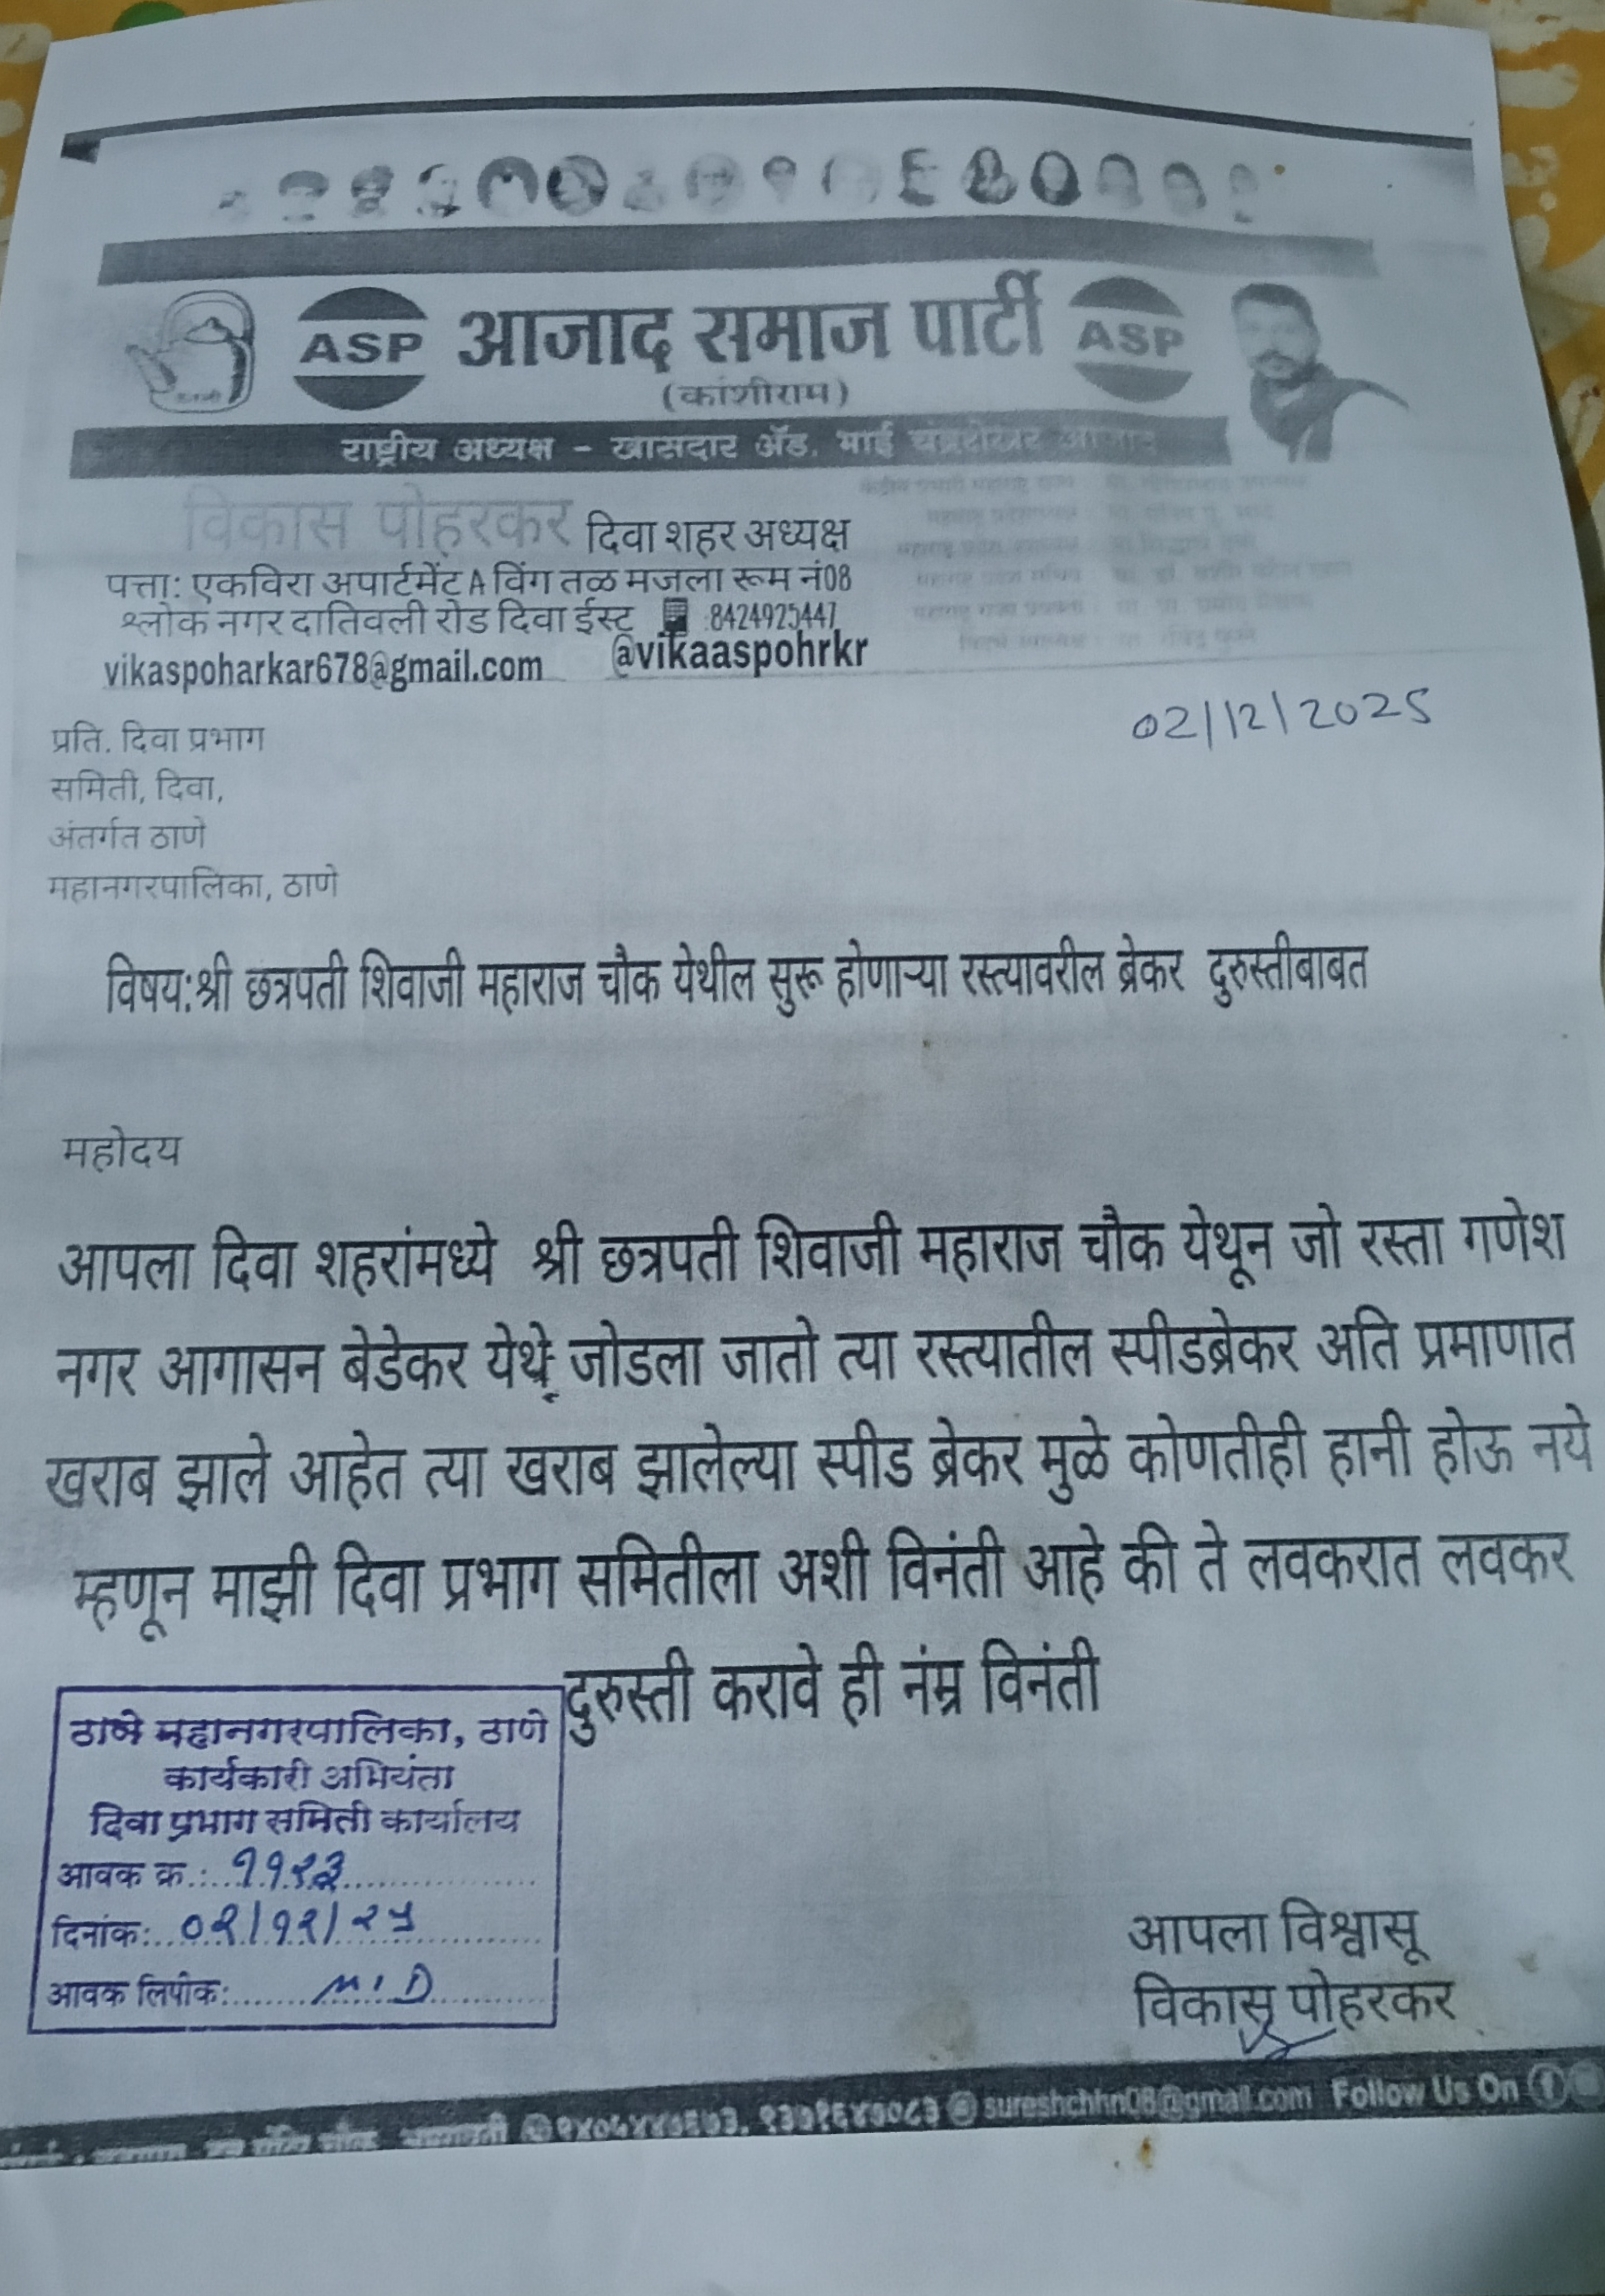 ASP आजाद समाज पार्टी ASP
(कांशीराम)
राष्ट्रीय अध्यक्ष - खासदार ॲड. भाई चंद्रशेखर आजाद
विकास पोहरकर दिवा शहर अध्यक्ष
पत्ता: एकविरा अपार्टमेंट A विंग तळ मजला रूम नं08
श्लोक नगर दातिवली रोड दिवा ईस्ट :8424925447
vikaspoharkar678@gmail.com @vikaaspohrkr
02/12/2025
प्रति. दिवा प्रभाग
समिती, दिवा,
अंतर्गत ठाणे
महानगरपालिका, ठाणे
विषय:श्री छत्रपती शिवाजी महाराज चौक येथील सुरू होणाऱ्या रस्त्यावरील ब्रेकर दुरुस्तीबाबत
महोदय
आपला दिवा शहरांमध्ये श्री छत्रपती शिवाजी महाराज चौक येथून जो रस्ता गणेश
नगर आगासन बेडेकर येथे जोडला जातो त्या रस्त्यातील स्पीडब्रेकर अति प्रमाणात
खराब झाले आहेत त्या खराब झालेल्या स्पीड ब्रेकर मुळे कोणतीही हानी होऊ नये
म्हणून माझी दिवा प्रभाग समितीला अशी विनंती आहे की ते लवकरात लवकर
दुरुस्ती करावे ही नंम्र विनंती
ठाणे महानगरपालिका, ठाणे
कार्यकारी अभियंता
दिवा प्रभाग समिती कार्यालय
आवक क्र.: ११२३
दिनांक: ०२/१२/२५
आवक लिपीक: M.D
आपला विश्वासू
विकास पोहरकर
sureshchhn08@gmail.com Follow Us On